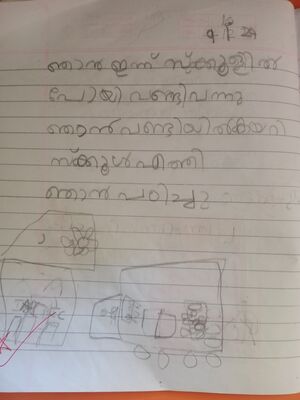 ഞാൻ ഇന്ന് സ്ക്കൂളിൽ
പോയി വണ്ടിവന്നു
ഞാൻ വണ്ടിയിൽകയറി
സ്ക്കൂൾ എത്തി
ഞാൻ പഠിച്ചു